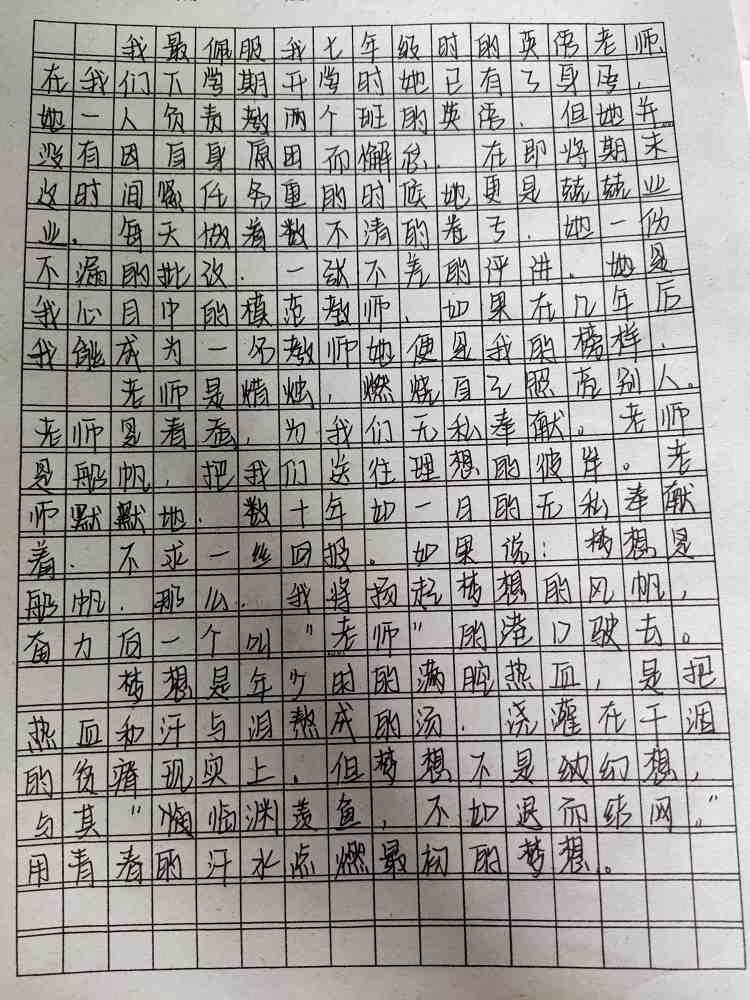 我最佩服我七年级时的英语老师，
在我们下学期开学时她已有了身孕，
她一人负责教两个班的英语，但她并
没有因自身原因而懈怠，在即将期末
这时间紧任务重的时候她更是兢兢业
业，每天做着数不清的卷子，她一份
不漏的批改，一张不差的评讲，她是
我心目中的模范教师，如果在几年后
我能成为一名教师她便是我的榜样，
老师是蜡烛，燃烧自己照亮别人。
老师是春蚕，为我们无私奉献。老师
是船帆，把我们送往理想的彼岸。老
师默默地，数十年如一日的无私奉献
着，不求一丝回报。如果说：梦想是
船帆，那么，我将扬起梦想的风帆，
奋力向一个叫“老师”的港口驶去。
梦想是年少时的满腔热血，是把
热血和汗与泪熬成的汤，浇灌在干涸
的贫瘠现实上，但梦想不是幻想，
与其“临渊羡鱼，不如退而结网。”
用青春的汗水点燃最初的梦想。